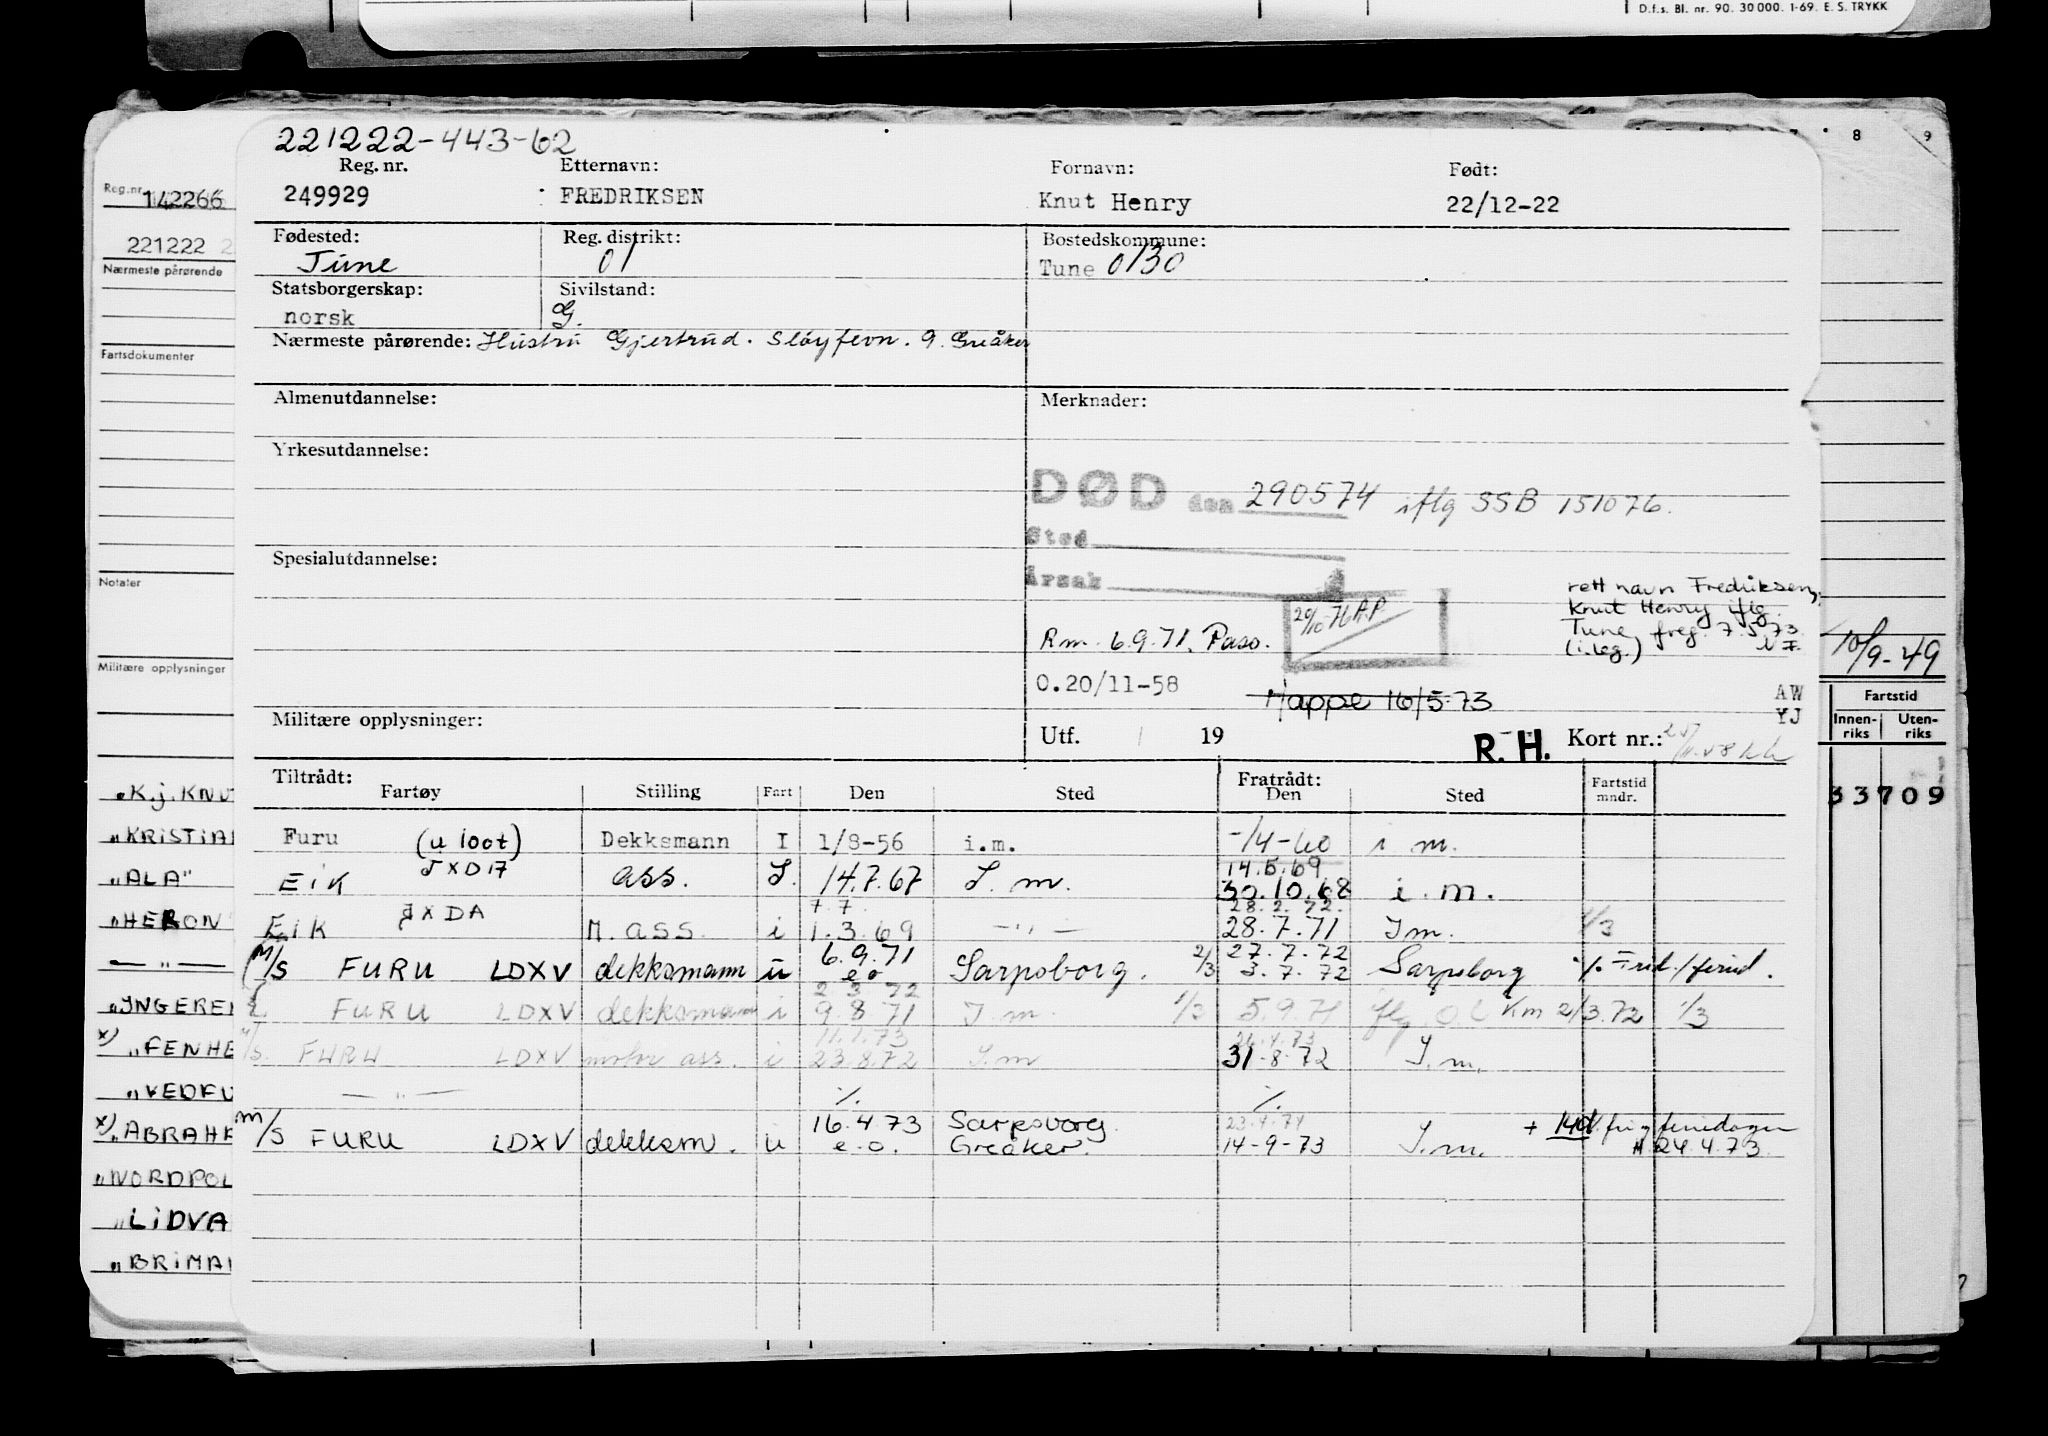 D.f.s. Bl. nr. 90. 30 000. 1-69. E. S. TRYKK
8 9
221222-443-62
Reg. nr. Etternavn: Fornavn: Født:
249929 FREDRIKSEN Knut Henry 22/12-22
Fødested: Reg. distrikt: Bostedskommune:
Tune 01 Tune 0130
Statsborgerskap: Sivilstand:
norsk G.
Nærmeste pårørende: Hustru Gjertrud. Sløyfevn. 9. Greåker
Almenutdannelse: Merknader:
Yrkesutdannelse:
DØD den 290574 iflg SSB 151076.
Sted
Spesialutdannelse: Årsak
rett navn Fredriksen,
20/10-76 AP Knut Henry iflg.
Rm. 6.9.71. Paso. Tune freg. 7.5.73
(i.leg.)
O.20/11-58
Mappe 16/5-73 AW
YJ
Militære opplysninger: Utf. 19 R.H. Kort nr.:
Tiltrådt: Fratrådt:
Fartøy Stilling Fart Den Sted Den Sted Fartstid mndr.
Furu (u loot) Dekksmann I 1/8-56 i.m. -/4-60 i m.
JXD17 14.5.69
EiK ass. I. 14.7.67 I. m. 30.10.68 i.m.
JXDA 7.7. 28.2.72.
EiK M. ass. i 1.3.69 -"- 28.7.71 Im. 1/3
6.9.71 27.7.72
M/S FURU LDXV dekksmann u e o Sarpsborg. 2/3 3.7.72 Sarpsborg
2.3.72
FURU LDXV dekksmann i 9.8.71 I m. 1/3 5.9.71 Km 2/3.72 1/3
11.1.73 26.4.73
FURU LDXV motor ass. i 23.8.72 I.m 31-8-72 I.m.
-"-
16.4.73 Sarpsborg. 23.4.74 + 14d. fri feriedager
m/s FURU LDXV dekksm. u e.o. Greåker. 14-9-73 I.m. 24.4.73.
Reg.nr. 142266
221222
Nærmeste pårørende
Fartsdokumenter
Notater
Militære opplysninger
"K.j. KNUT
"KRiSTiA
"ALA"
"HERON
-"-
"INGERE
x) "FENHE
"VEDFU
x) "ABRAHA
"NORDPOL
"LiDVA
"BRiMA
10/9-49
Fartstid
Innenriks Utenriks
33709